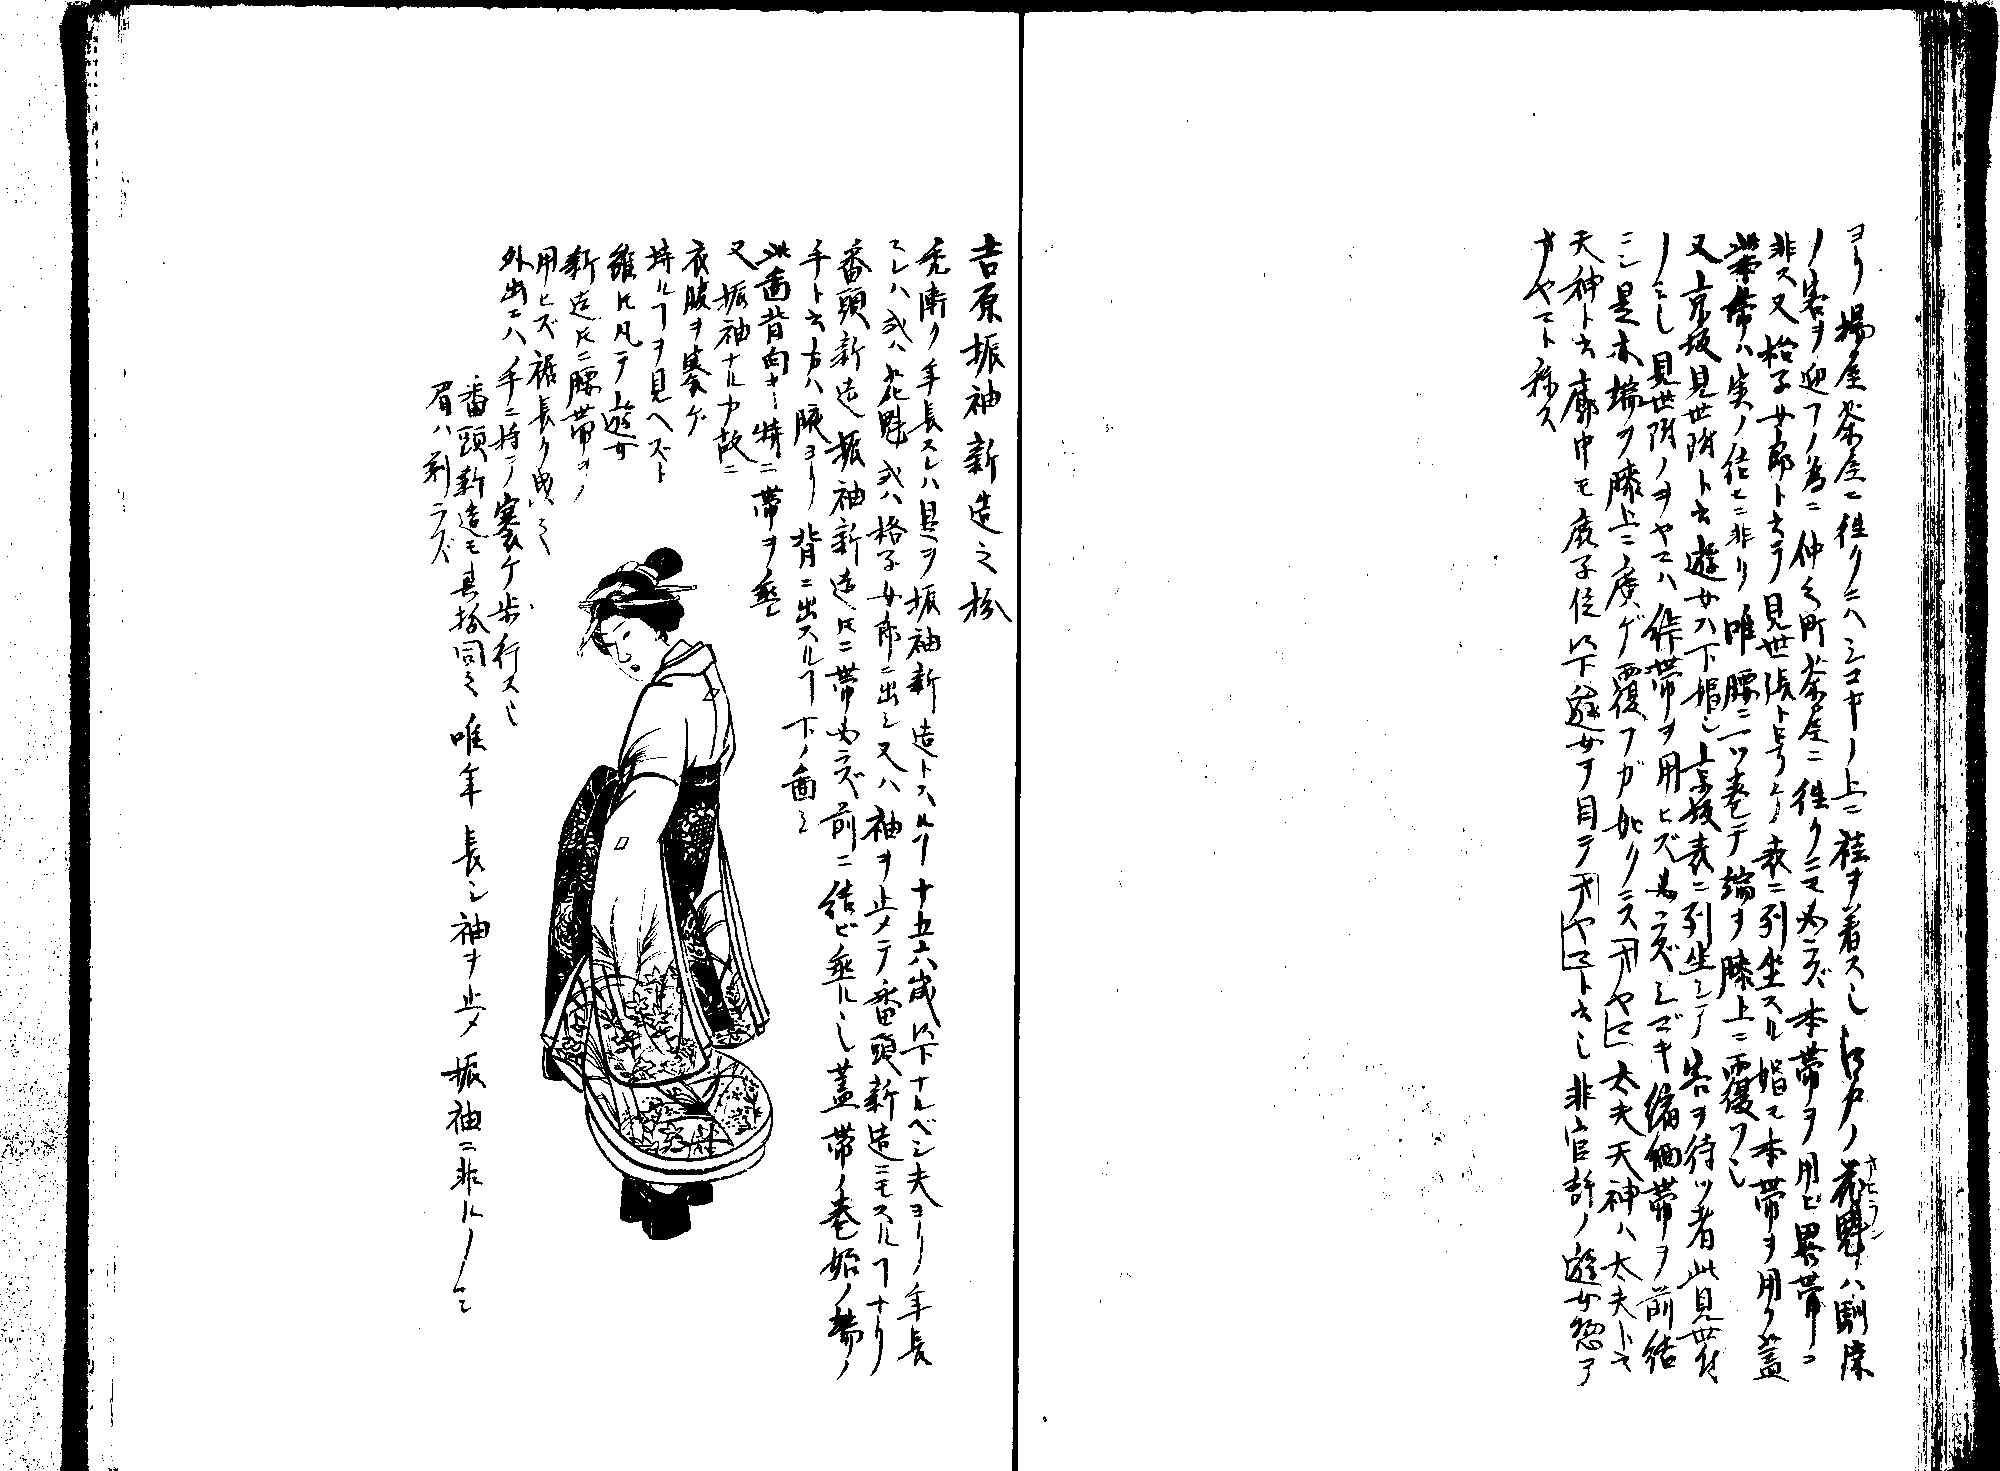 ヨリ揚屋茶屋ニ徃クニハシコキノ上ニ袿ヲ着ス也江戸ノ花魁ハ馴染
オヒラン
ノ客ヲ迎フノ為ニ仲之町茶屋ニ徃クニモ必ラズ本帯ヲ用ヒ畧帯ニ
非ス又格子女郎ト云テ見世張ト号ケ表ニ列坐スル娼モ本帯ヲ用ク蓋
帯ハ実ノ結ヒニ非リ唯腰ニ一ツ巻テ端ヲ膝上ニ覆フ也
又京坂見世附ト云遊女ハ下娼也京坂表ニ列坐シテ客ヲ待ツ者此見世付
ノミ也見世附ノヲヤマハ絆帯ヲ用ヒズ必ラズシゴキ縮緬帯ヲ前結
ニシ是亦端ヲ膝上ニ廣ゲ覆フガ如クニス オヤマ 太夫天神ハ太夫ト云
天神ト云廓中モ鹿子位以下遊女ヲ目テオヤマト云也非官許ノ遊女惣テ
オヤマト称ス
吉原振袖新造之扮
禿漸ク年長スレハ是ヲ振袖新造トスルヿ十五六歳以下ナルベシ夫ヨリ年長
スレハ或ハ花魁或ハ格子女郎ニ出シ又ハ袖ヲ止メテ番頭新造ニモスルヿナリ
番頭新造振袖新造トモニ帯必ラズ前ニ結ビ垂ル也蓋帯ノ巻始ノ端ノ
手ト云方ハ腋ヨリ背ニ出スルヿ下ノ圖ミ
此圖背向キ特ニ帯ヲ垂
又振袖ナルカ故ニ
衣腋ヲ褰ゲ
持ルヿヲ見ヘズト
雖トモ凡テ遊女
新造トモニ腰帯ヲ
用ヒズ裾長ク曳く
外出ニハ手ニ持テ褰ケ歩行ス也
番頭新造モ其扮同之唯年長シ袖ヲ止メ振袖ニ非ルノミ
眉ハ剃ラズ